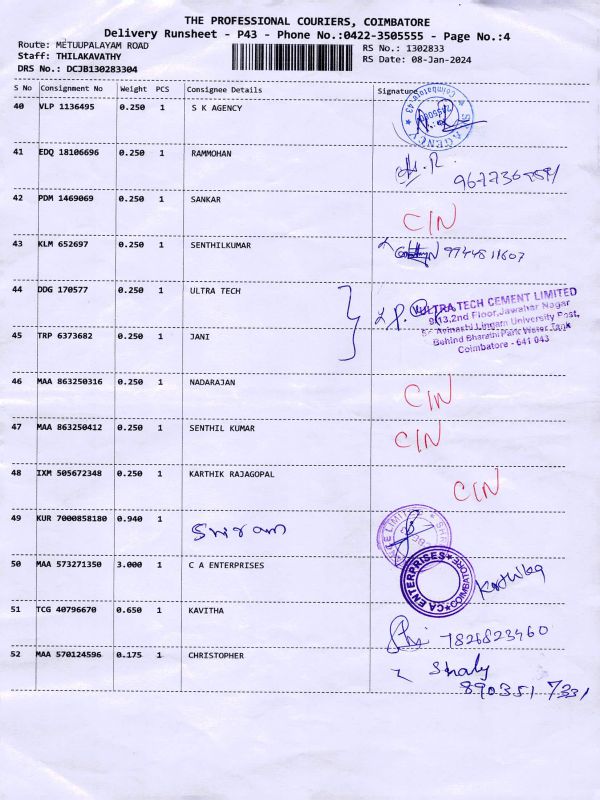 THE PROFESSIONAL COURIERS, COIMBATORE
Delivery Runsheet - P43 - Phone No.:0422-3505555 - Page No.:4
Route: METUUPALAYAM ROAD RS No.: 1302833
Staff: THILAKAVATHY RS Date: 08-Jan-2024
DRS No.: DCJB130283304
S No Consignment No Weight PCS Consignee Details Signature
40 VLP 1136495 0.250 1 S K AGENCY
41 EDQ 18106696 0.250 1 RAMMOHAN
42 PDM 1469069 0.250 1 SANKAR CIN
43 KLM 652697 0.250 1 SENTHILKUMAR 9944811607
44 DDG 170577 0.250 1 ULTRA TECH
ULTRA TECH CEMENT LIMITED
9/13,2nd Floor,Jawahar Nagar
Avinashi Lingam University Post,
Behind Bharathi Park Water Tank
Coimbatore - 641 043
45 TRP 6373682 0.250 1 JANI
46 MAA 863250316 0.250 1 NADARAJAN CIN
47 MAA 863250412 0.250 1 SENTHIL KUMAR CIN
48 IXM 505672348 0.250 1 KARTHIK RAJAGOPAL CIN
49 KUR 7000858180 0.940 1 Sriram
50 MAA 573271350 3.000 1 C A ENTERPRISES CA ENTERPRISES COIMBATORE Karthika
51 TCG 40796670 0.650 1 KAVITHA 7826823460
52 MAA 570124596 0.175 1 CHRISTOPHER Shaly
890351 7331